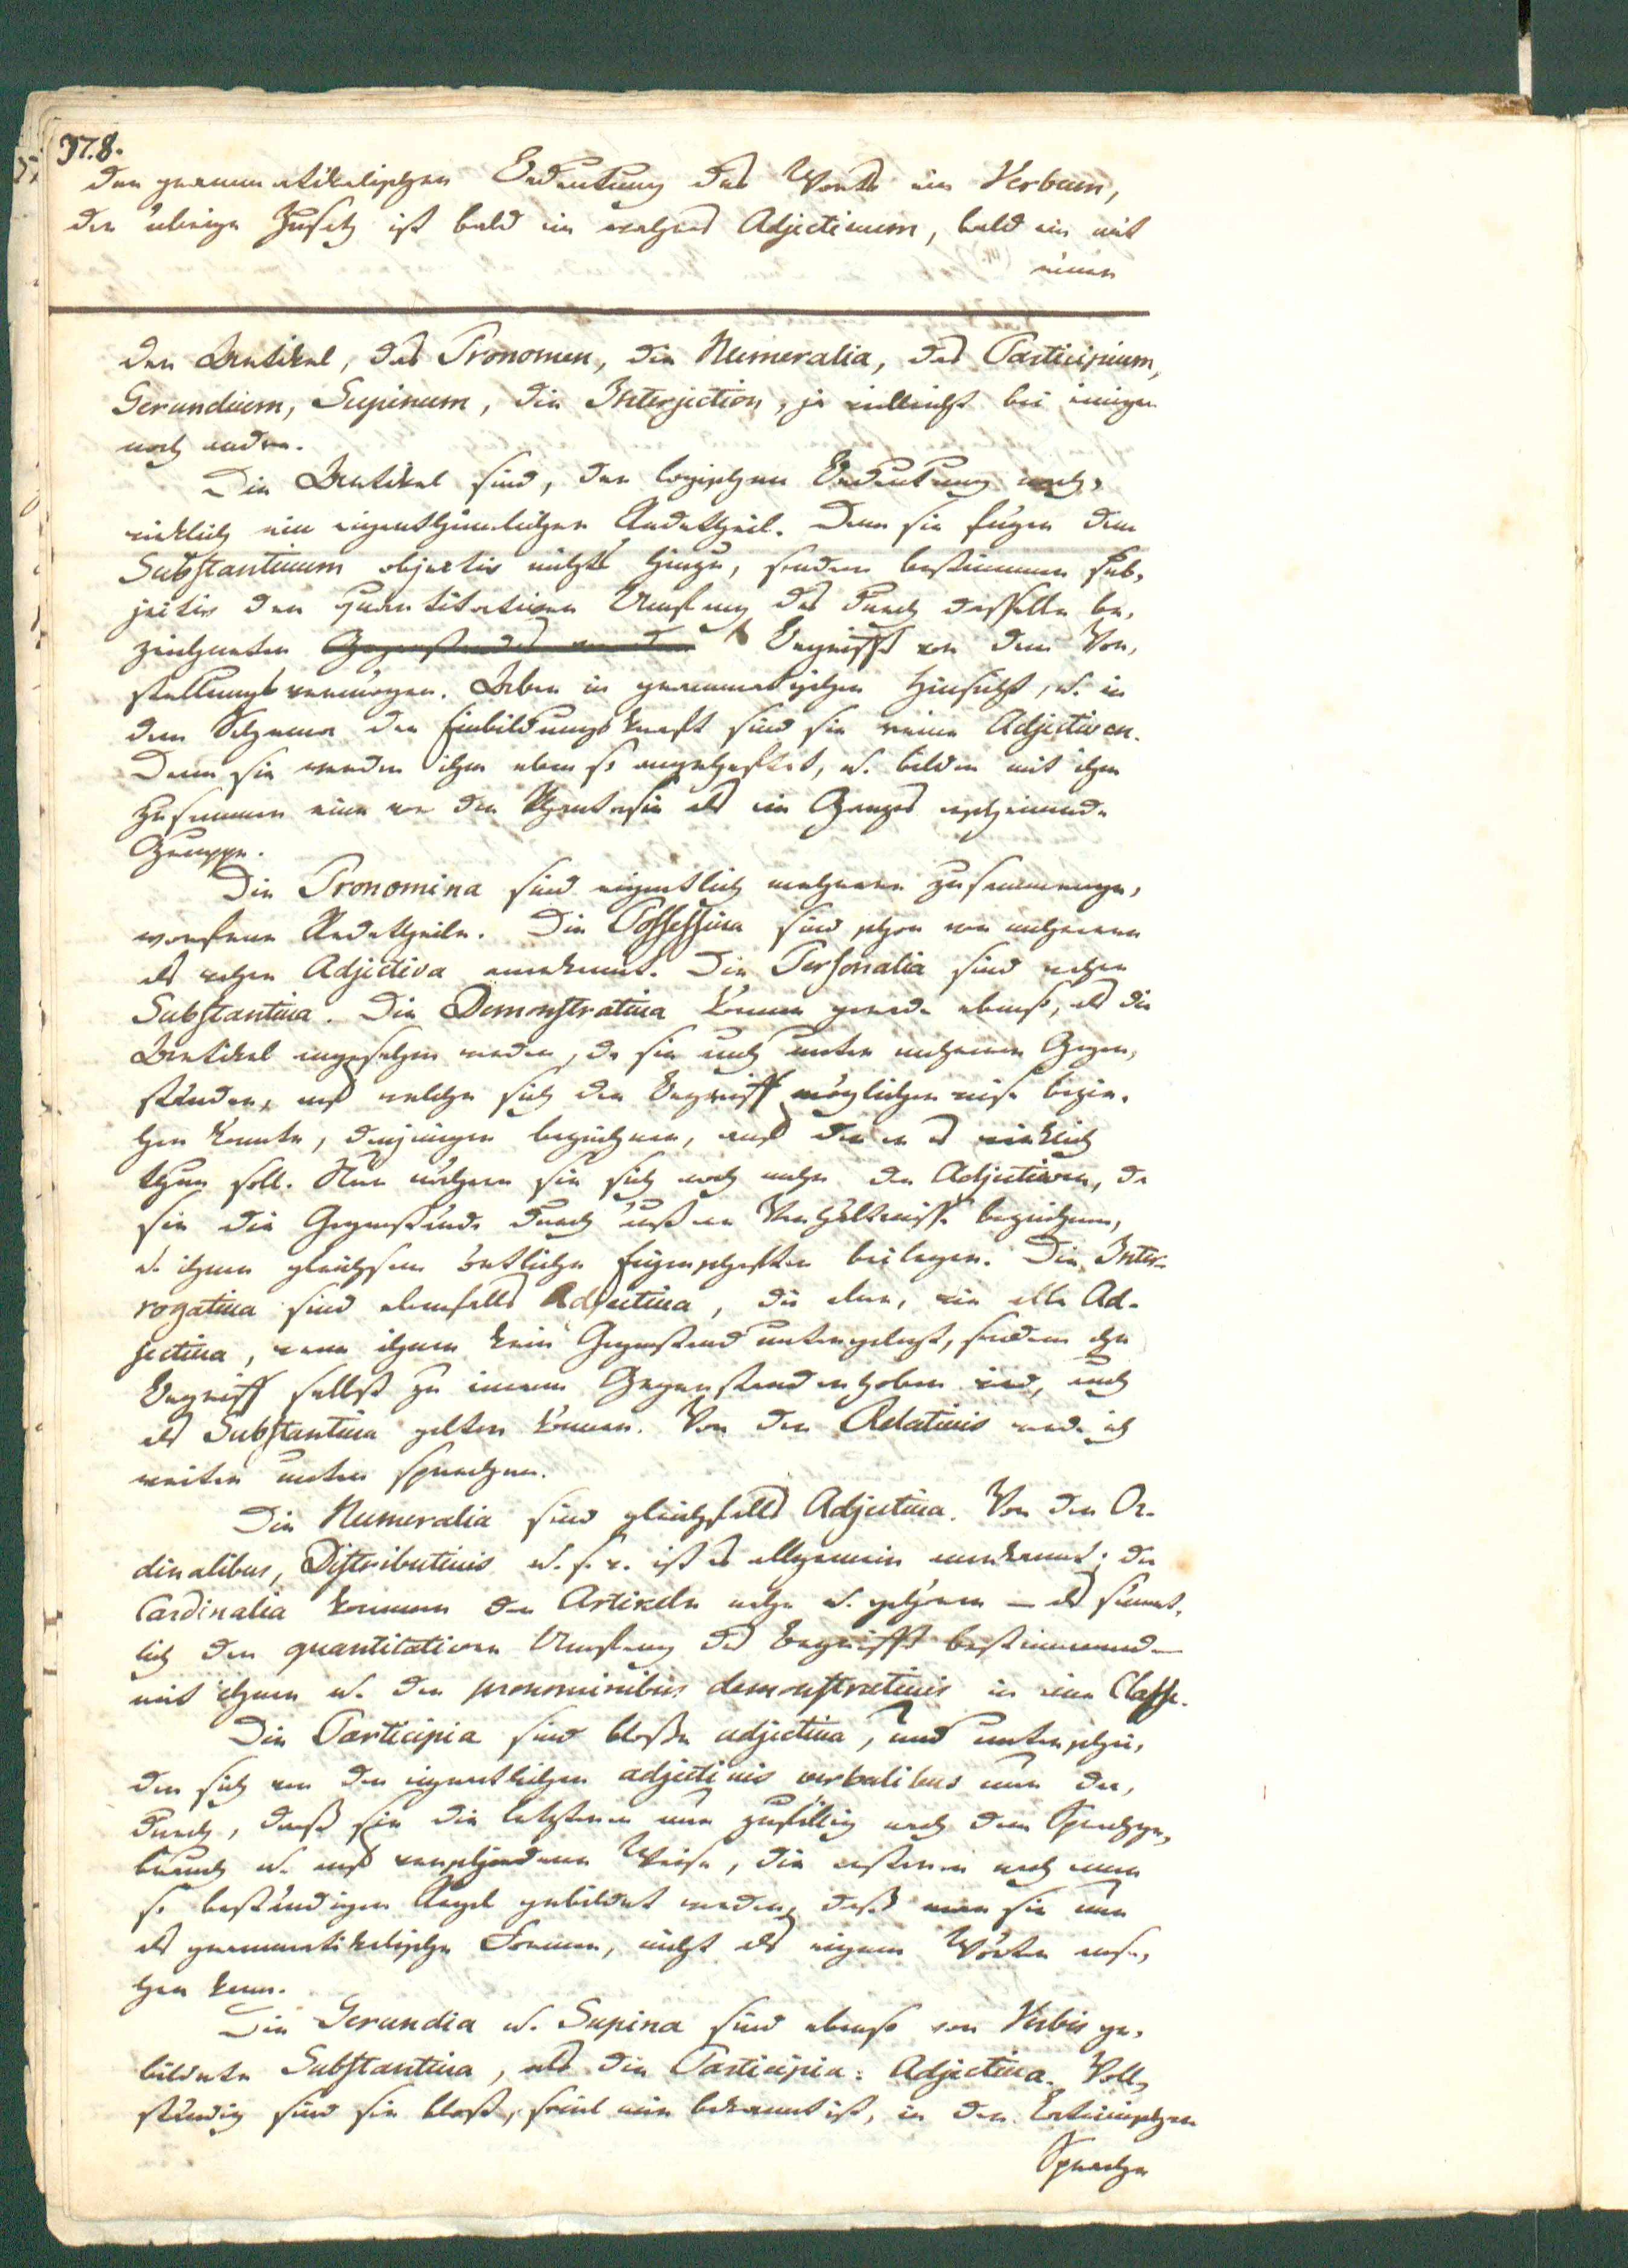 378.
der grammatikalischen Bedeutung des Worts ein Verbum,
der übrige Zusatz ist bald ein wahres Adjectivum, bald ein mit
einem
der Artikel, das Pronomen, die Numeralia, das Participium,
Gerundium, Supinum, die Interjection, ja vielleicht bei einigen
noch andre.
Die Artikel sind, der logischen Bedeutung nach,
wirklich ein eigenthümlicher Redetheil. Denn sie fügen dem
Substantivum objectiv nichts hinzu, sondern bestimmen sub-
jectiv den quantitativen Umfang des durch dasselbe be-
zeichneten Gegenstandes von dem Begriffs von dem Vor-
stellungsvermögen. Aber in grammatischer Hinsicht, u. in
dem Schema der Einbildungskraft sind sie reine Adjectiven.
Denn sie werden ihm eben so angeheftet, u. bilden mit ihm
zusammen eine von der Phantasie als ein Ganzes erscheinende
Gruppe.
Die Pronomina sind eigentlich mehrere zusammenge-
worfene Redetheile. Die Possessiva sind schon von mehreren
als wahre Adjectiva anerkannt. Die Personalia sind wahre
Substantiva. Die Demonstrativa können gerade ebenso, als die
Artikel angesehen werden, da sie auch unter mehreren Gegen-
ständen, auf welche sich der Begriff möglicherweise bezie-
hen könnte, denjenigen bezeichnen, auf den er es wirklich
thun soll. Nur nähern sie sich noch mehr den Adjectiven, da
sie die Gegenstände durch äußere Verhältnisse bezeichnen,
u. ihnen gleichsam örtliche Eigenschaften beilegen. Die Inter-
rogativa sind ebenfalls Adjectiva, die aber, wie alle Ad-
jectiva, wenn ihnen kein Gegenstand untergelegt, sondern ihr
Begriff selbst zu einem Gegenstand erhoben wird, auch
als Substantiva gelten können. Von den Relativis werde ich
weiter unten sprechen.
Die Numeralia sind gleichfalls Adjectiva. Von den Or-
dinalibus, Distributivis u. s. w. ist es allgemein anerkannt; die
Cardinalia kommen den Artikeln nahe u. gehören – als sämmt-
lich den quantitativen Umfang des Begriffs bestimmend –
mit ihnen u. den pronominibus demonstrativis in eine Classe.
Die Participia sind bloße adjectiva, und unterschei-
den sich von den eigentlichen adjectivis verbalibus nur da-
durch, daß sie die letzteren nur zufällig nach dem Sprachge-
brauch u. auf verschiedene Weise, die ersteren nach einer
so beständigen Regel gebildet werden, daß man sie nur
als grammatikalische Formen, nicht als eigene Wörter anse-
hen kann.
Die Gerundia u. Supina sind ebenso von Verbis ge-
bildete Substantiva, als die Participia: Adjectiva. Voll-
ständig sind sie bloß, soviel mir bekannt ist, in der Lateinischen
Sprache